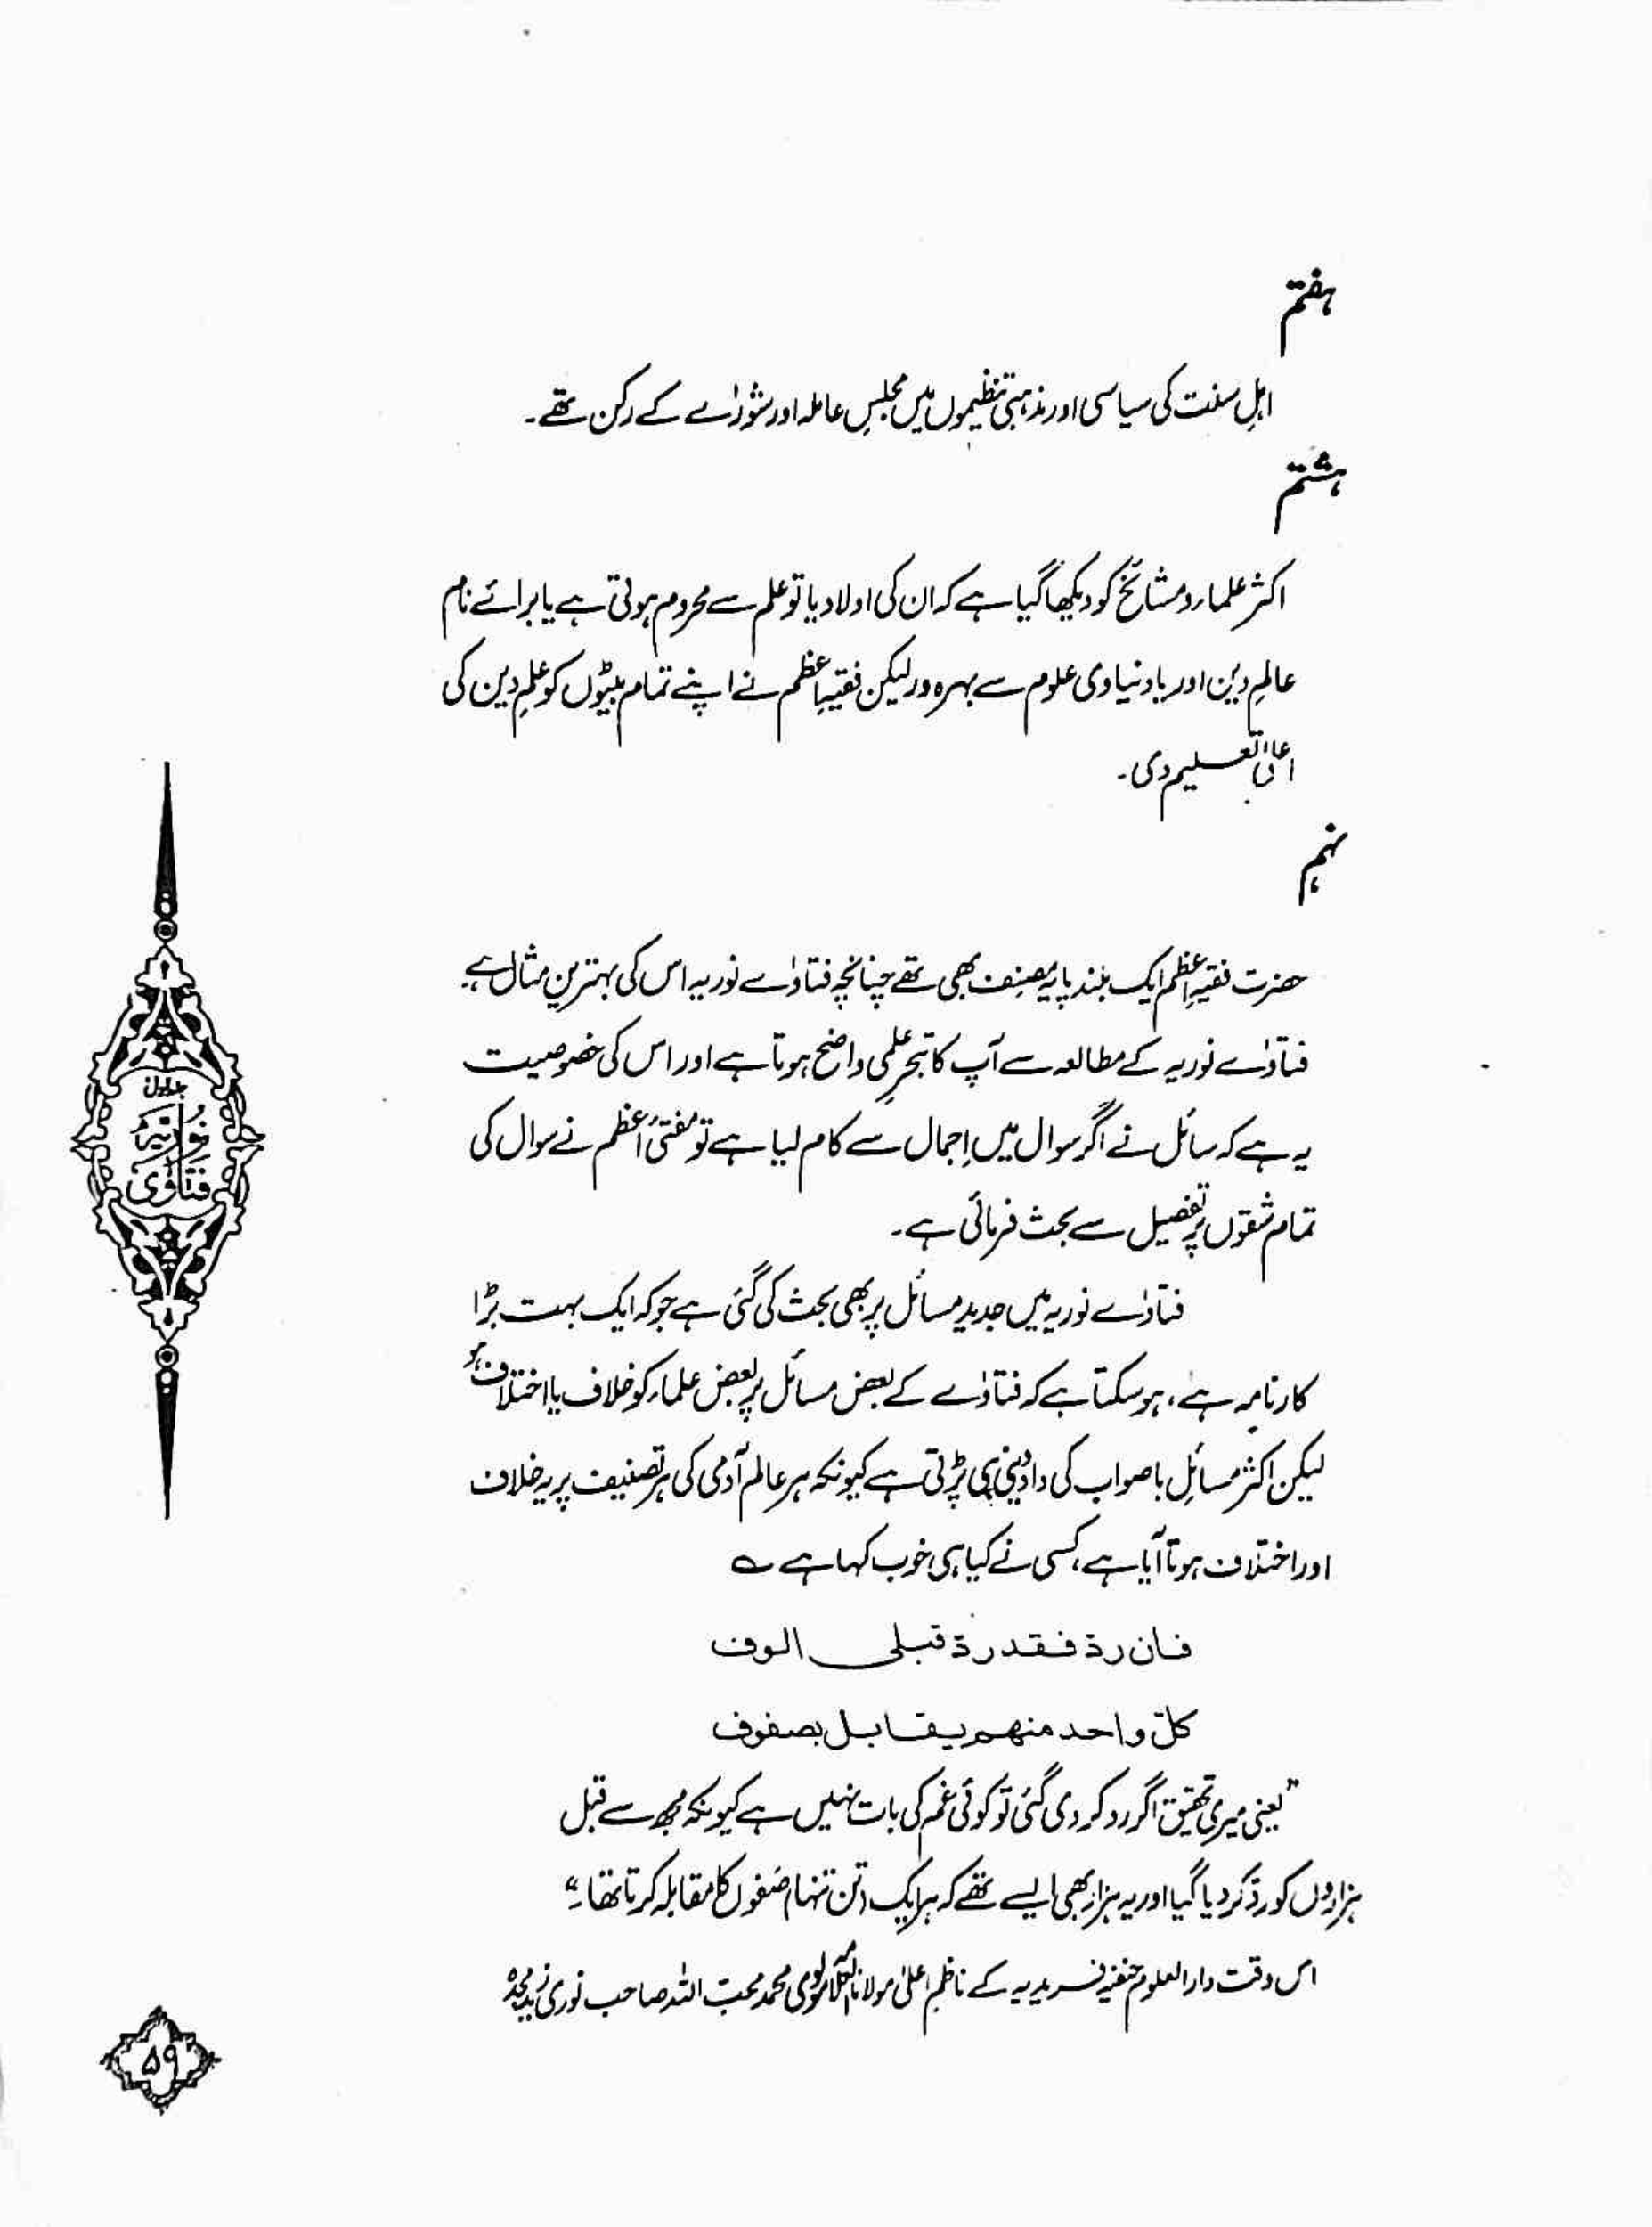 ہفتم
اہلِ سنت کی سیاسی اور مذہبی تنظیموں میں مجلسِ عاملہ اور شورٰے کے رکن تھے۔
ہشتم
اکثر علماء و مشائخ کو دیکھا گیا ہے کہ ان کی اولاد یا تو علم سے محروم ہوتی ہے یا برائے نام
عالمِ دین اور یا دنیاوی علوم سے بہرہ ور لیکن فقیہِ اعظم نے اپنے تمام بیٹوں کو علمِ دین کی
اعلیٰ تعلیم دی۔
نہم
حضرت فقیہِ اعظم ایک بلند پایہ مصنف بھی تھے چنانچہ فتاوٰے نوریہ اس کی بہترین مثال ہے۔
فتاوٰے نوریہ کے مطالعہ سے آپ کا تبحرِ علمی واضح ہوتا ہے اور اس کی خصوصیت
یہ ہے کہ سائل نے اگر سوال میں اِجمال سے کام لیا ہے تو مفتیٔ اعظم نے سوال کی
تمام شقوں پر تفصیل سے بحث فرمائی ہے۔
فتاوٰے نوریہ میں جدید مسائل پر بھی بحث کی گئی ہے جو کہ ایک بہت بڑا
کارنامہ ہے، ہو سکتا ہے کہ فتاوٰے کے بعض مسائل پر بعض علماء کو خلاف یا اختلاف ہو
لیکن اکثر مسائلِ باصواب کی داد دینی ہی پڑتی ہے کیونکہ ہر عالم آدمی کی ہر تصنیف پر یہ خلاف
اور اختلاف ہوتا آیا ہے، کسی نے کیا ہی خوب کہا ہے ؎
فان ردّ فقد ردّ قبلی الوف
کلّ واحد منھم یقابل بصفوف
"یعنی میری تحقیق اگر رد کر دی گئی تو کوئی غم کی بات نہیں ہے کیونکہ مجھ سے قبل
ہزاروں کو ردّ کر دیا گیا اور یہ ہزار بھی ایسے تھے کہ ہر ایک تن تنہا صفوں کا مقابلہ کرتا تھا۔"
اس وقت دارالعلوم حنفیہ فریدیہ کے ناظمِ اعلیٰ مولانا العلامہ مولوی محمد محبّ اللہ صاحب نوری زید مجدہ
جلد اوّل
نوریہ
فتاوٰی
۵۹